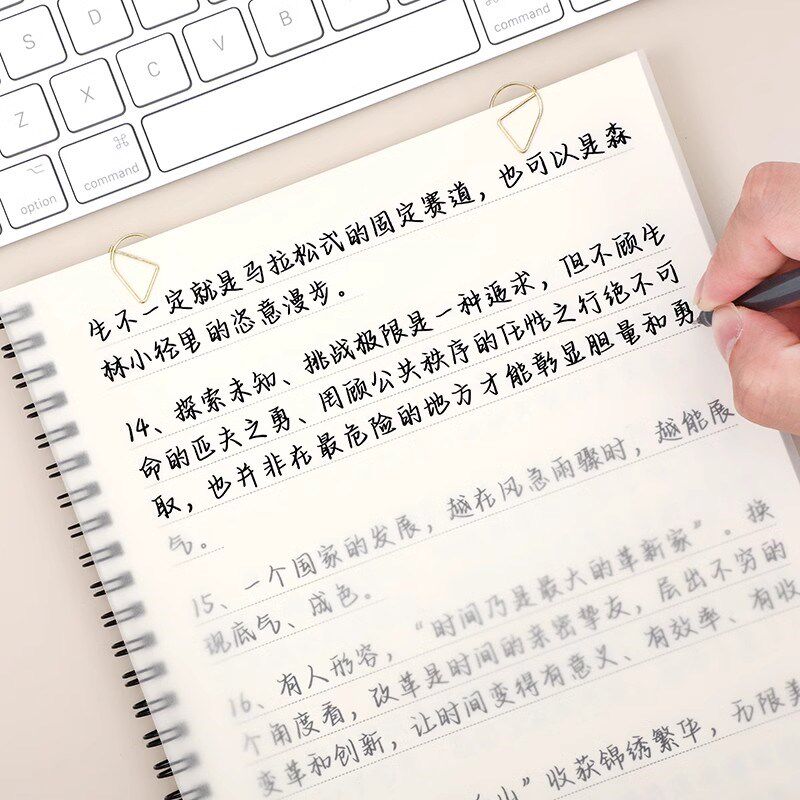 S D
Z X C V B N M
option command
command
生不一定就是马拉松式的固定赛道，也可以是森
林小径里的恣意漫步。
14、探索未知、挑战极限是一种追求，但不顾生
命的匹夫之勇、罔顾公共秩序的任性之行绝不可
取，也并非在最危险的地方才能彰显胆量和勇
气。
15、一个国家的发展，越在风急雨骤时，越能展
现底气、成色。
16、有人形容，“时间乃是最大的革新家”。换
个角度看，改革是时间的亲密挚友，层出不穷的
变革和创新，让时间变得有意义、有效率、有收
”收获锦绣繁华，无限美